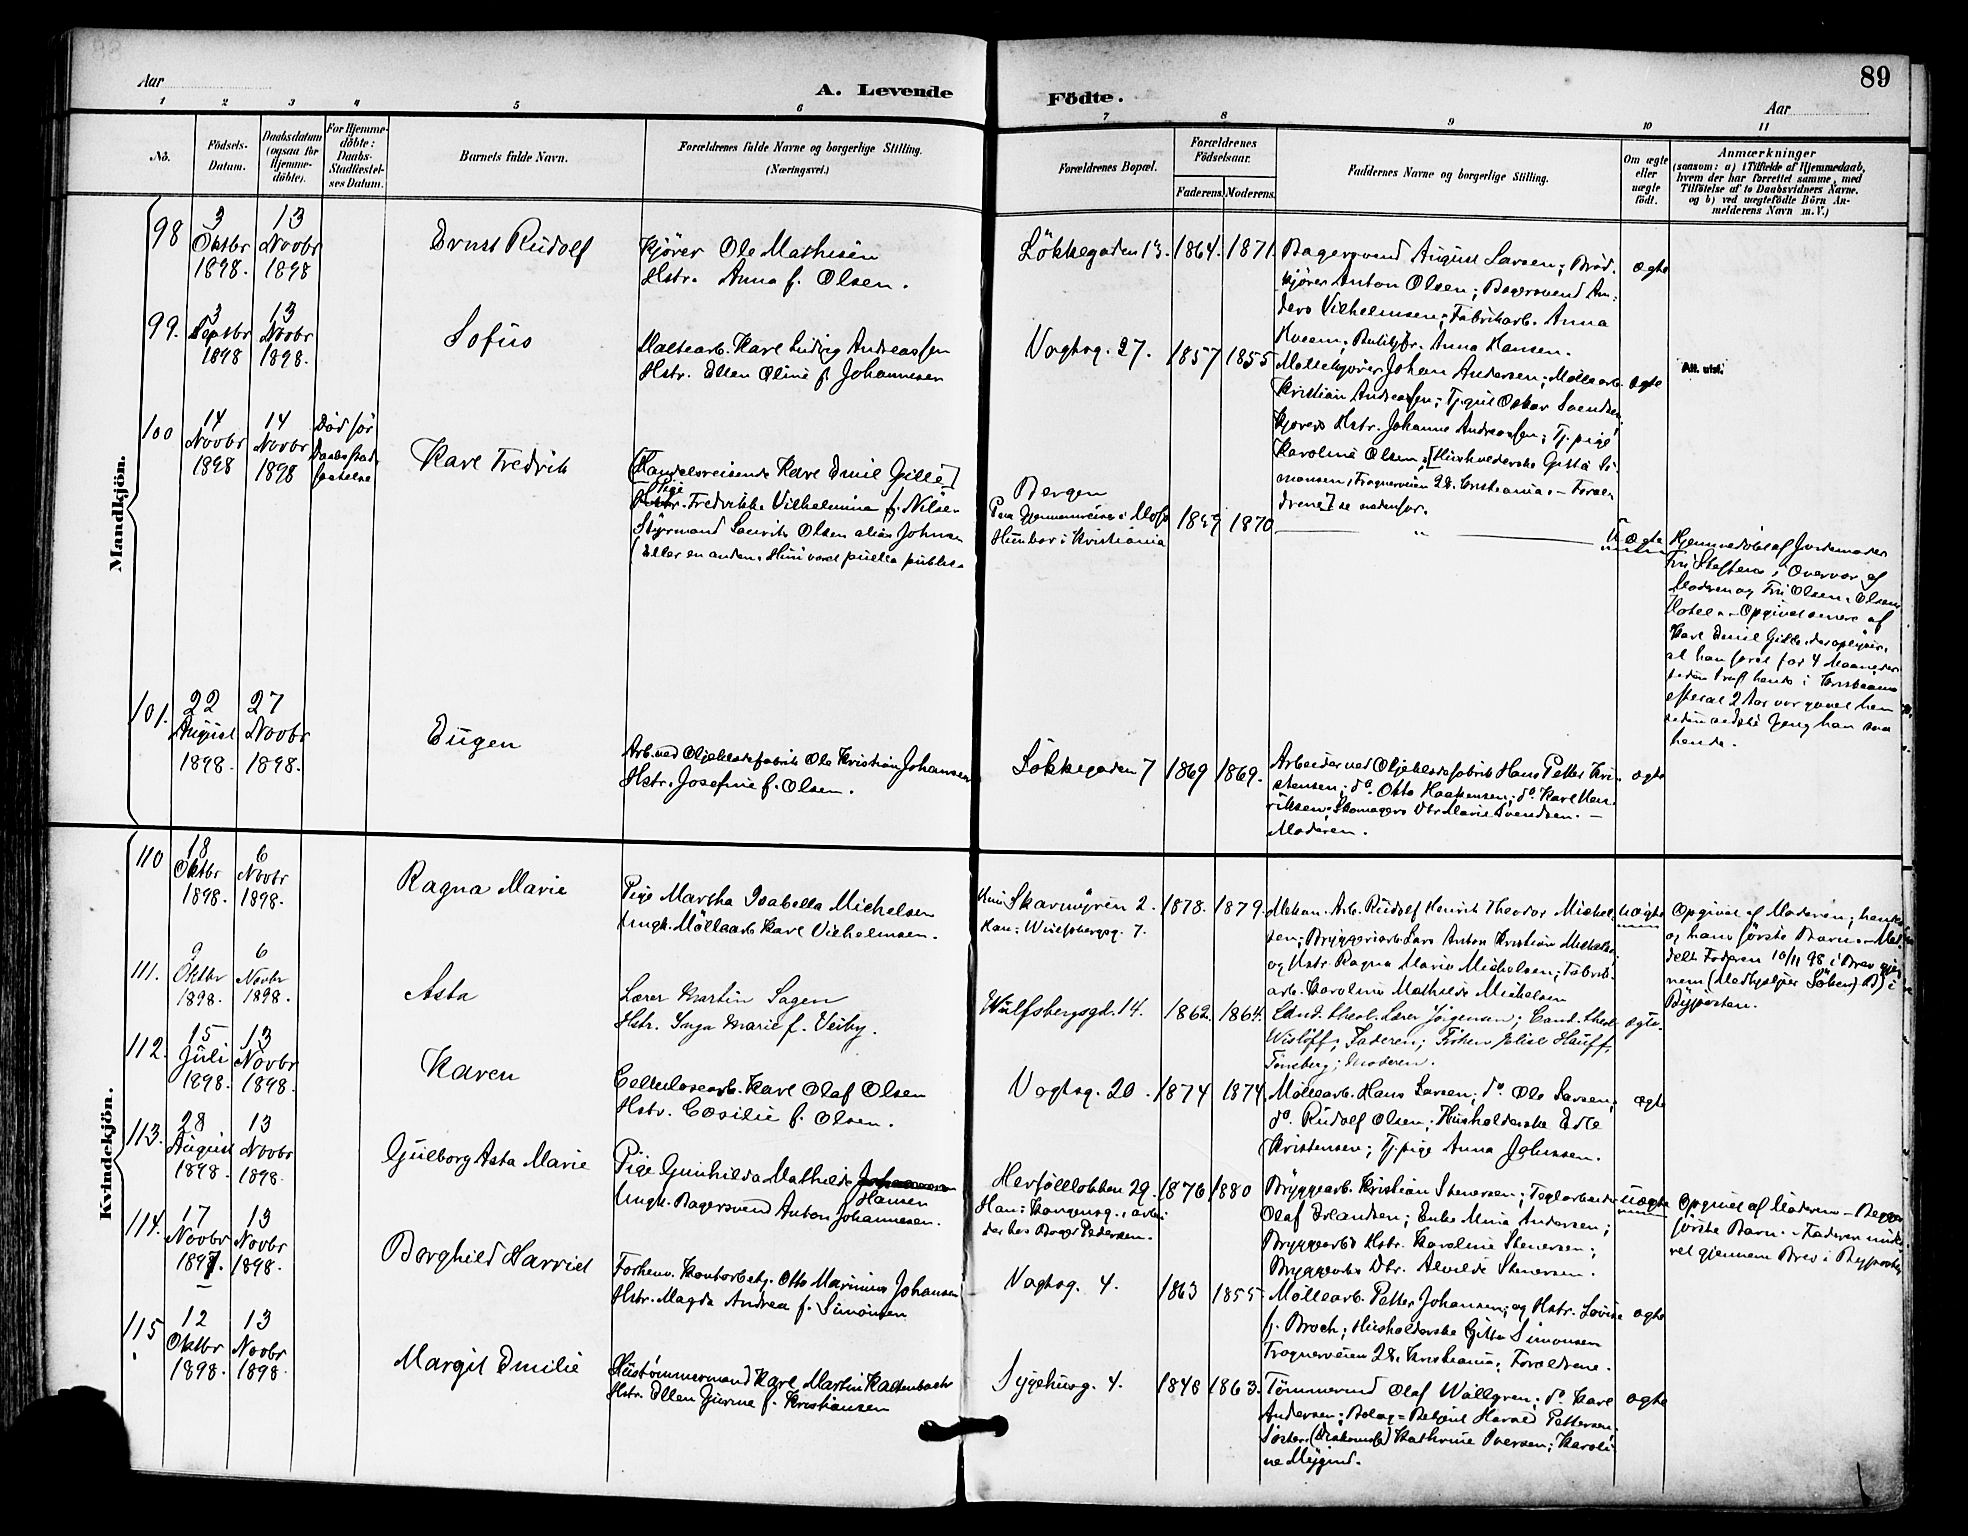 89
Aar
A. Levende
Födte.
Aar
1 2 3 4 5 6 7 8 9 10 11
No.
Födsels-
Datum.
Daabsdatum
(ogsaa for
Hjemme-
döbte).
For Hjemme-
döbte:
Daabs-
Stadfæstel-
ses Datum.
Barnets fulde Navn.
Forældrenes fulde Navne og borgerlige Stilling.
(Næringsvei.)
Forældrenes Bopæl.
Forældrenes
Födselsaar.
Faderens. Moderens.
Faddernes Navne og borgerlige Stilling.
Om ægte
eller
uægte
födt.
Anmærkninger
(saasom: a) i Tilfælde af Hjemmedaab,
hvem der har forrettet samme, med
Tilföielse af to Daabsvidners Navne,
og b) ved uægtefödte Börn An-
melderens Navn m. V.)
Mandkjön.
98
3
Oktbr
1898.
13
Novbr
1898
Ernst Rudolf
Kjörer Ole Mathisen
Hstr. Anna f. Olsen.
Løkkegaden 13. 1864. 1871.
Bagersvend August Larsen; Bröd-
kjører Anton Olsen; Bagersvend An-
ders Vilhelmsen; Fabrikarb. Anna
Anna Hansen.
ægte
99.
3
Septbr
1898
13
Novbr
1898.
Sofus
Karl Ludvig Andreassen
Hstr. Ellen Oline f. Johannesen
Vogtsg. 27. 1857 1855
Møllekjører Johan Andersen; Møllearb.
Kristian Andreassen; Tj.gut Oskar Svendsen
Kjørers Hstr. Johanne Andreassen; Tj. pige
Karoline Olsen.
ægte
Att. utst.
100
14
Novbr
1898
14
Novbr
1898
Död før
Daabsstad-
fæstelse
Karl Fredrik
[Handelsreisende Karl Emil Gille]
Pige
Hstr. Fredrikke Vilhelmina f. Nilsen
Styrmand Laurits Olsen alias Johnsen
(Eller en anden. Hun var puella publica
Bergen
Paa Gjennemreise i Moss
Hun bor i Kristiania
1849 1870
[Husholderske Gitta Si-
monsen, Frognerveien 28. Kristiania. - Foræl-
drene] se nedenfor.
Uægte
Hjemmedöbt af Jordemoder
Fru Steffens i Overvær af
Moderen og Fru Olsen, Olsens
Hotel. - Opgivet senere af
Karl Emil Gille, der oplyser,
at han først for 4 Maaneder
siden traf hende i Kristiania
efterat 2 Aar var gaaet hen
siden sidste Gang han saa
hende.
101.
22
August
1898.
27
Novbr
1898.
Eugen
Arb. ved Oljeklædefabrik Ole Kristian Johansen
Hstr. Josefine f. Olsen.
Løkkegaden 7 1869 1869.
Arbeider ved Oljeklædefabrik Hans Petter Kri-
stensen; do. Otto Haakensen; do. Karl Hen-
riksen; Skomagers Dtr Marie Svendsen. -
Moderen.
ægte
Kvindekjön.
110
18
Oktbr
1898.
6
Novbr
1898.
Ragna Marie
Pige Martha Isabella Michelsen
Ungk. Möllearb Karl Vilhelmsen.
Hun: Skarmyren 2. 1878. 1879.
Han: Wulfsbergsg. 7.
Mekan. Arb. Rudolf Henrik Theodor Michel-
sen; Bryggeriarb Lars Anton Kristian Michelsen
og Hstr Ragna Marie Michelsen; Fabrik-
arb. Karoline Mathilde Michelsen
uægte
Opgivet af Moderen; hendes
og hans første Barn. - Med-
delt Faderen 10/11 98 i Brev gjen-
nem
Bypposten.
111.
9
Oktbr
1898.
6
Novbr
1898.
Asta
Lærer Martin Sagen
Hstr. Inga Marie f. Veiby.
Wulfsbergsgd. 14. 1862. 1864.
Cand. theol. Lærer Jørgensen; Cand. theol.
Wisløff; Faderen; Frøken Elise Hauff,
Tønsberg; Moderen.
ægte
112.
15
Juli
1898.
13
Novbr
1898.
Karen
Cellulosearb. Karl Olaf Olsen
Hstr. Cecilie f. Olsen.
Vogtsg. 20. 1874 1874.
Møllearb. Hans Larsen; do. Ole Larsen;
do. Rudolf Olsen; Husholderske Edle
Kristensen; Tj. pige Anna Johnsen.
ægte
113.
28
August
1898.
13
Novbr
1898.
Gulborg Asta Marie
Pige Gunhilda Mathilde
Hansen
Ungk. Bagersvend Anton Johannesen.
Herföllløkken 29. 1876 1880
Han: Kongensg. i arbei-
de hos Bager Pedersen.
Bryggearb. Kristian Stenersen; Teglarbeider
Olaf Erlandsen; Enke Mina Andersen;
Bryggearbs Hstr. Karoline Stenersen;
Bryggearbs Dtr. Alvilde Stenersen.
uægte
Opgivet af Moderen. - Begges
første Barn. - Faderen under-
ret gjennem Brev i Byposten
114.
17
Novbr
1897.
13
Novbr
1898.
Borghild Harriet
Forhenv. Kontorbetj. Otto Marinius Johansen
Hstr. Magda Andrea f. Simonsen
Vogtsg. 4. 1863 1855
Møllearb. Petter Johansen; og Hstr. Lovise
f. Broch; Husholderske Gitta Simonsen
Frognerveien 28, Kristiania; Forældrene.
ægte
115
12
Oktbr
1898.
13
Novbr
1898.
Margit Emilie
Hustømmermand Karl Martin Kaltenbach
Hstr. Ellen Gurine f. Kristiansen
Sygehusg. 4. 1848 1863.
Tømmermd Olaf Wallgren; do. Karl
Andersen; Bolag-Betjent Harald Pettersen,
Søster (Diakonisse) Kathrine Iversen; Karoli-
ne
ægte